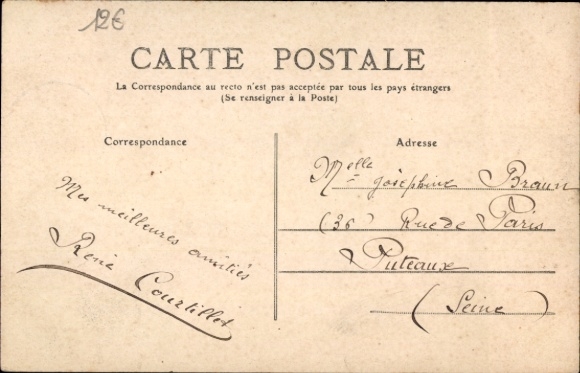 12€
CARTE POSTALE
La Correspondance au recto n'est pas acceptée par tous les pays étrangers
(Se renseigner à la Poste)
Correspondance
Mes meilleures amitiés
René Courtillot
Adresse
Melle Joséphine Braun
(36) Rue de Paris
Puteaux
(Seine)